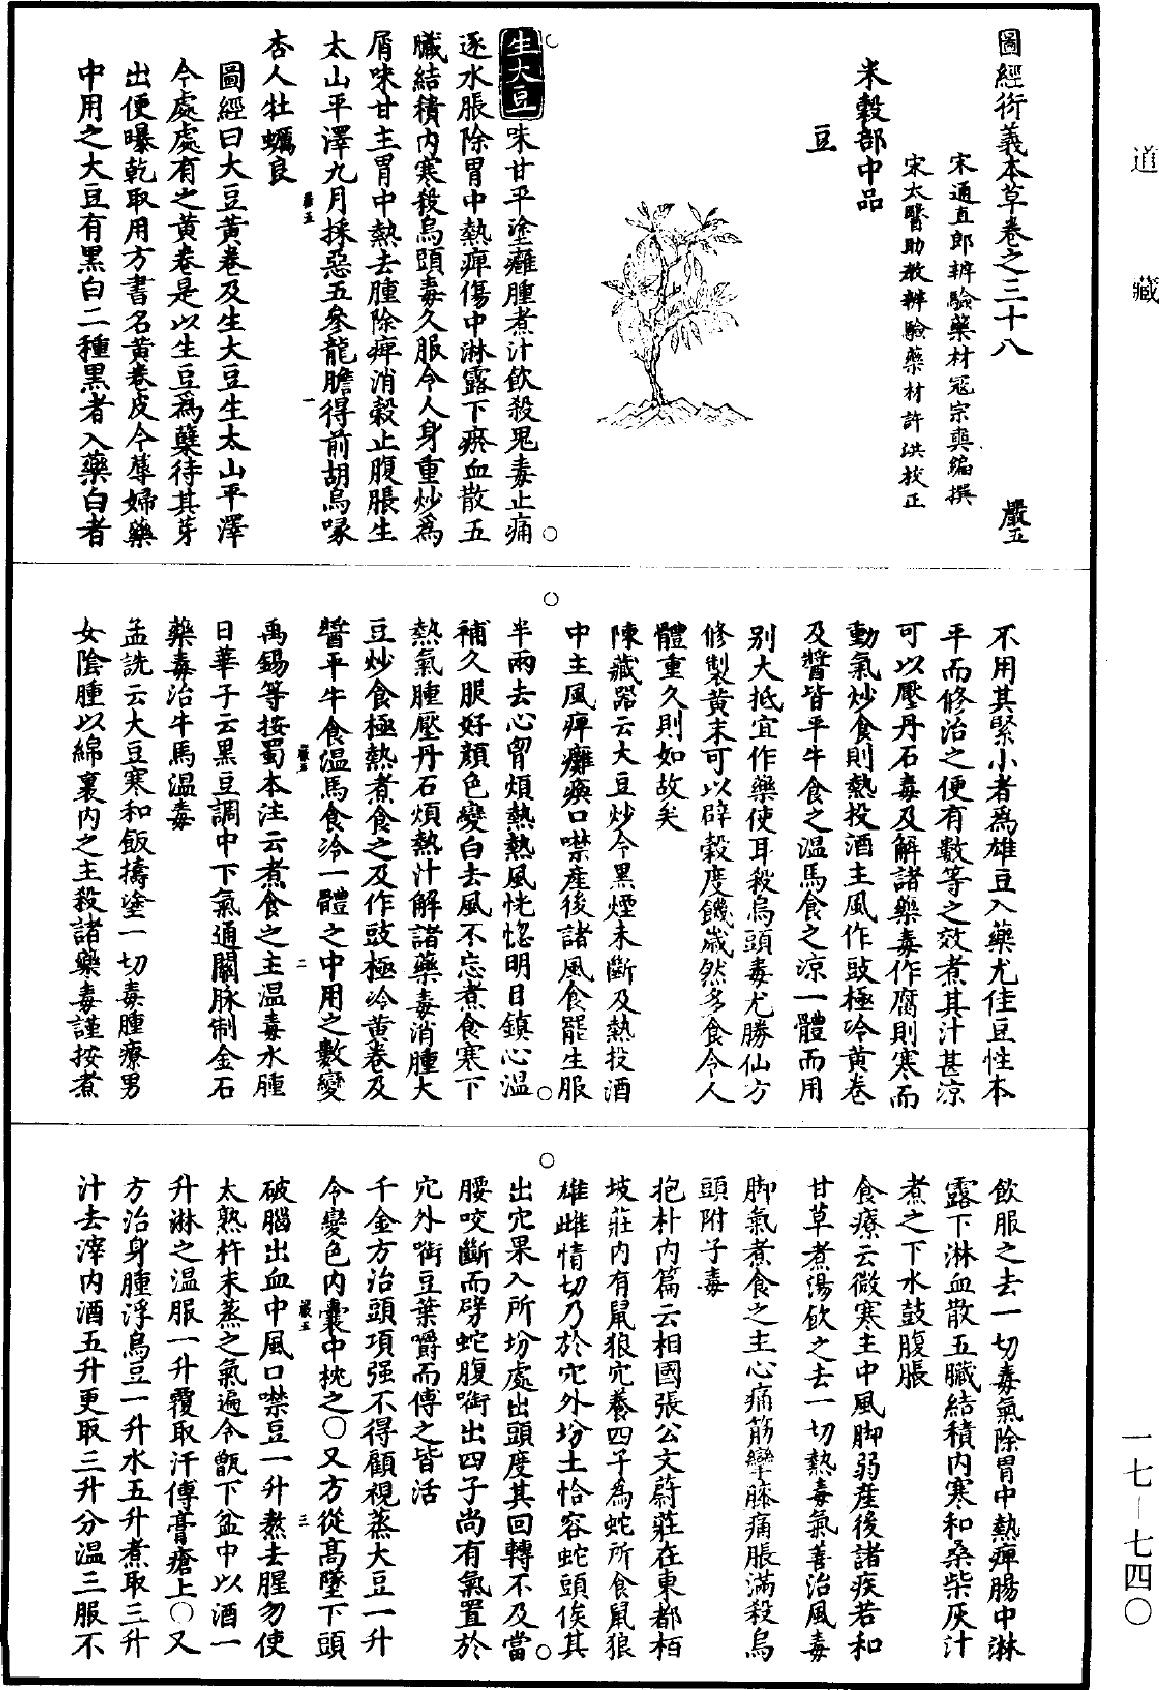 道藏
圖經衍義本草卷之三十八　嚴五
宋通直郎辨驗藥材寇宗奭編撰
宋太醫助教辨驗藥材許洪校正
米穀部中品
豆
生大豆味甘平塗癰腫煮汁飲殺鬼毒止痛
逐水脹除胃中熱痺傷中淋露下瘀血散五
臟結積内寒殺烏頭毒久服令人身重炒爲
屑味甘主胃中熱去腫除痺消穀止腹脹生
太山平澤九月採惡五參龍膽得前胡烏喙
杏人牡蠣良
嚴五　一
圖經曰大豆黄卷及生大豆生太山平澤
今處處有之黄卷是以生豆爲蘖待其芽
出便曝乾取用方書名黄卷皮今蓐婦藥
中用之大豆有黑白二種黑者入藥白者
不用其緊小者爲雄豆入藥尤佳豆性本
平而修治之便有數等之效煮其汁甚凉
可以壓丹石毒及解諸藥毒作腐則寒而
動氣炒食則熱投酒主風作豉極冷黄卷
及醬皆平牛食之温馬食之凉一體而用
别大抵宜作藥使耳殺烏頭毒尤勝仙方
修製黄末可以辟穀度饑歲然多食令人
體重久則如故矣
陳藏器云大豆炒令黑煙未斷及熱投酒
中主風痺癱瘓口噤産後諸風食罷生服
半兩去心胷煩熱熱風恍惚明目鎮心温
補久服好顔色變白去風不忘煮食寒下
熱氣腫壓丹石煩熱汁解諸藥毒消腫大
豆炒食極熱煮食之及作豉極冷黄卷及
醬平牛食温馬食冷一體之中用之數變
嚴五　二
禹錫等按蜀本注云煮食之主温毒水腫
日華子云黑豆調中下氣通關脉制金石
藥毒治牛馬温毒
孟詵云大豆寒和飯擣塗一切毒腫療男
女陰腫以綿裹内之主殺諸藥毒謹按煮
飲服之去一切毒氣除胃中熱痺腸中淋
露下淋血散五臟結積内寒和桑柴灰汁
煮之下水鼓腹脹
食療云微寒主中風脚弱産後諸疾若和
甘草煮湯飲之去一切熱毒氣善治風毒
脚氣煮食之主心痛筋攣膝痛脹滿殺烏
頭附子毒
抱朴内篇云相國張公文蔚莊在東都栢
坡莊内有鼠狼穴養四子為蛇所食鼠狼
雄雌情切乃於穴外坋土恰容蛇頭俟其
出穴果入所坋處出頭度其回轉不及當
腰咬斷而劈蛇腹啣出四子尚有氣置於
穴外啣豆葉嚼而傅之皆活
千金方治頭項强不得顧視蒸大豆一升
令變色内囊中枕之○又方從高墜下頭
嚴五　三
破腦出血中風口噤豆一升熬去腥勿使
太熟杵末蒸之氣遍令甑下盆中以酒一
升淋之温服一升覆取汗傅膏瘡上○又
方治身腫浮烏豆一升水五升煮取三升
汁去滓内酒五升更取三升分温三服不
一七－七四〇